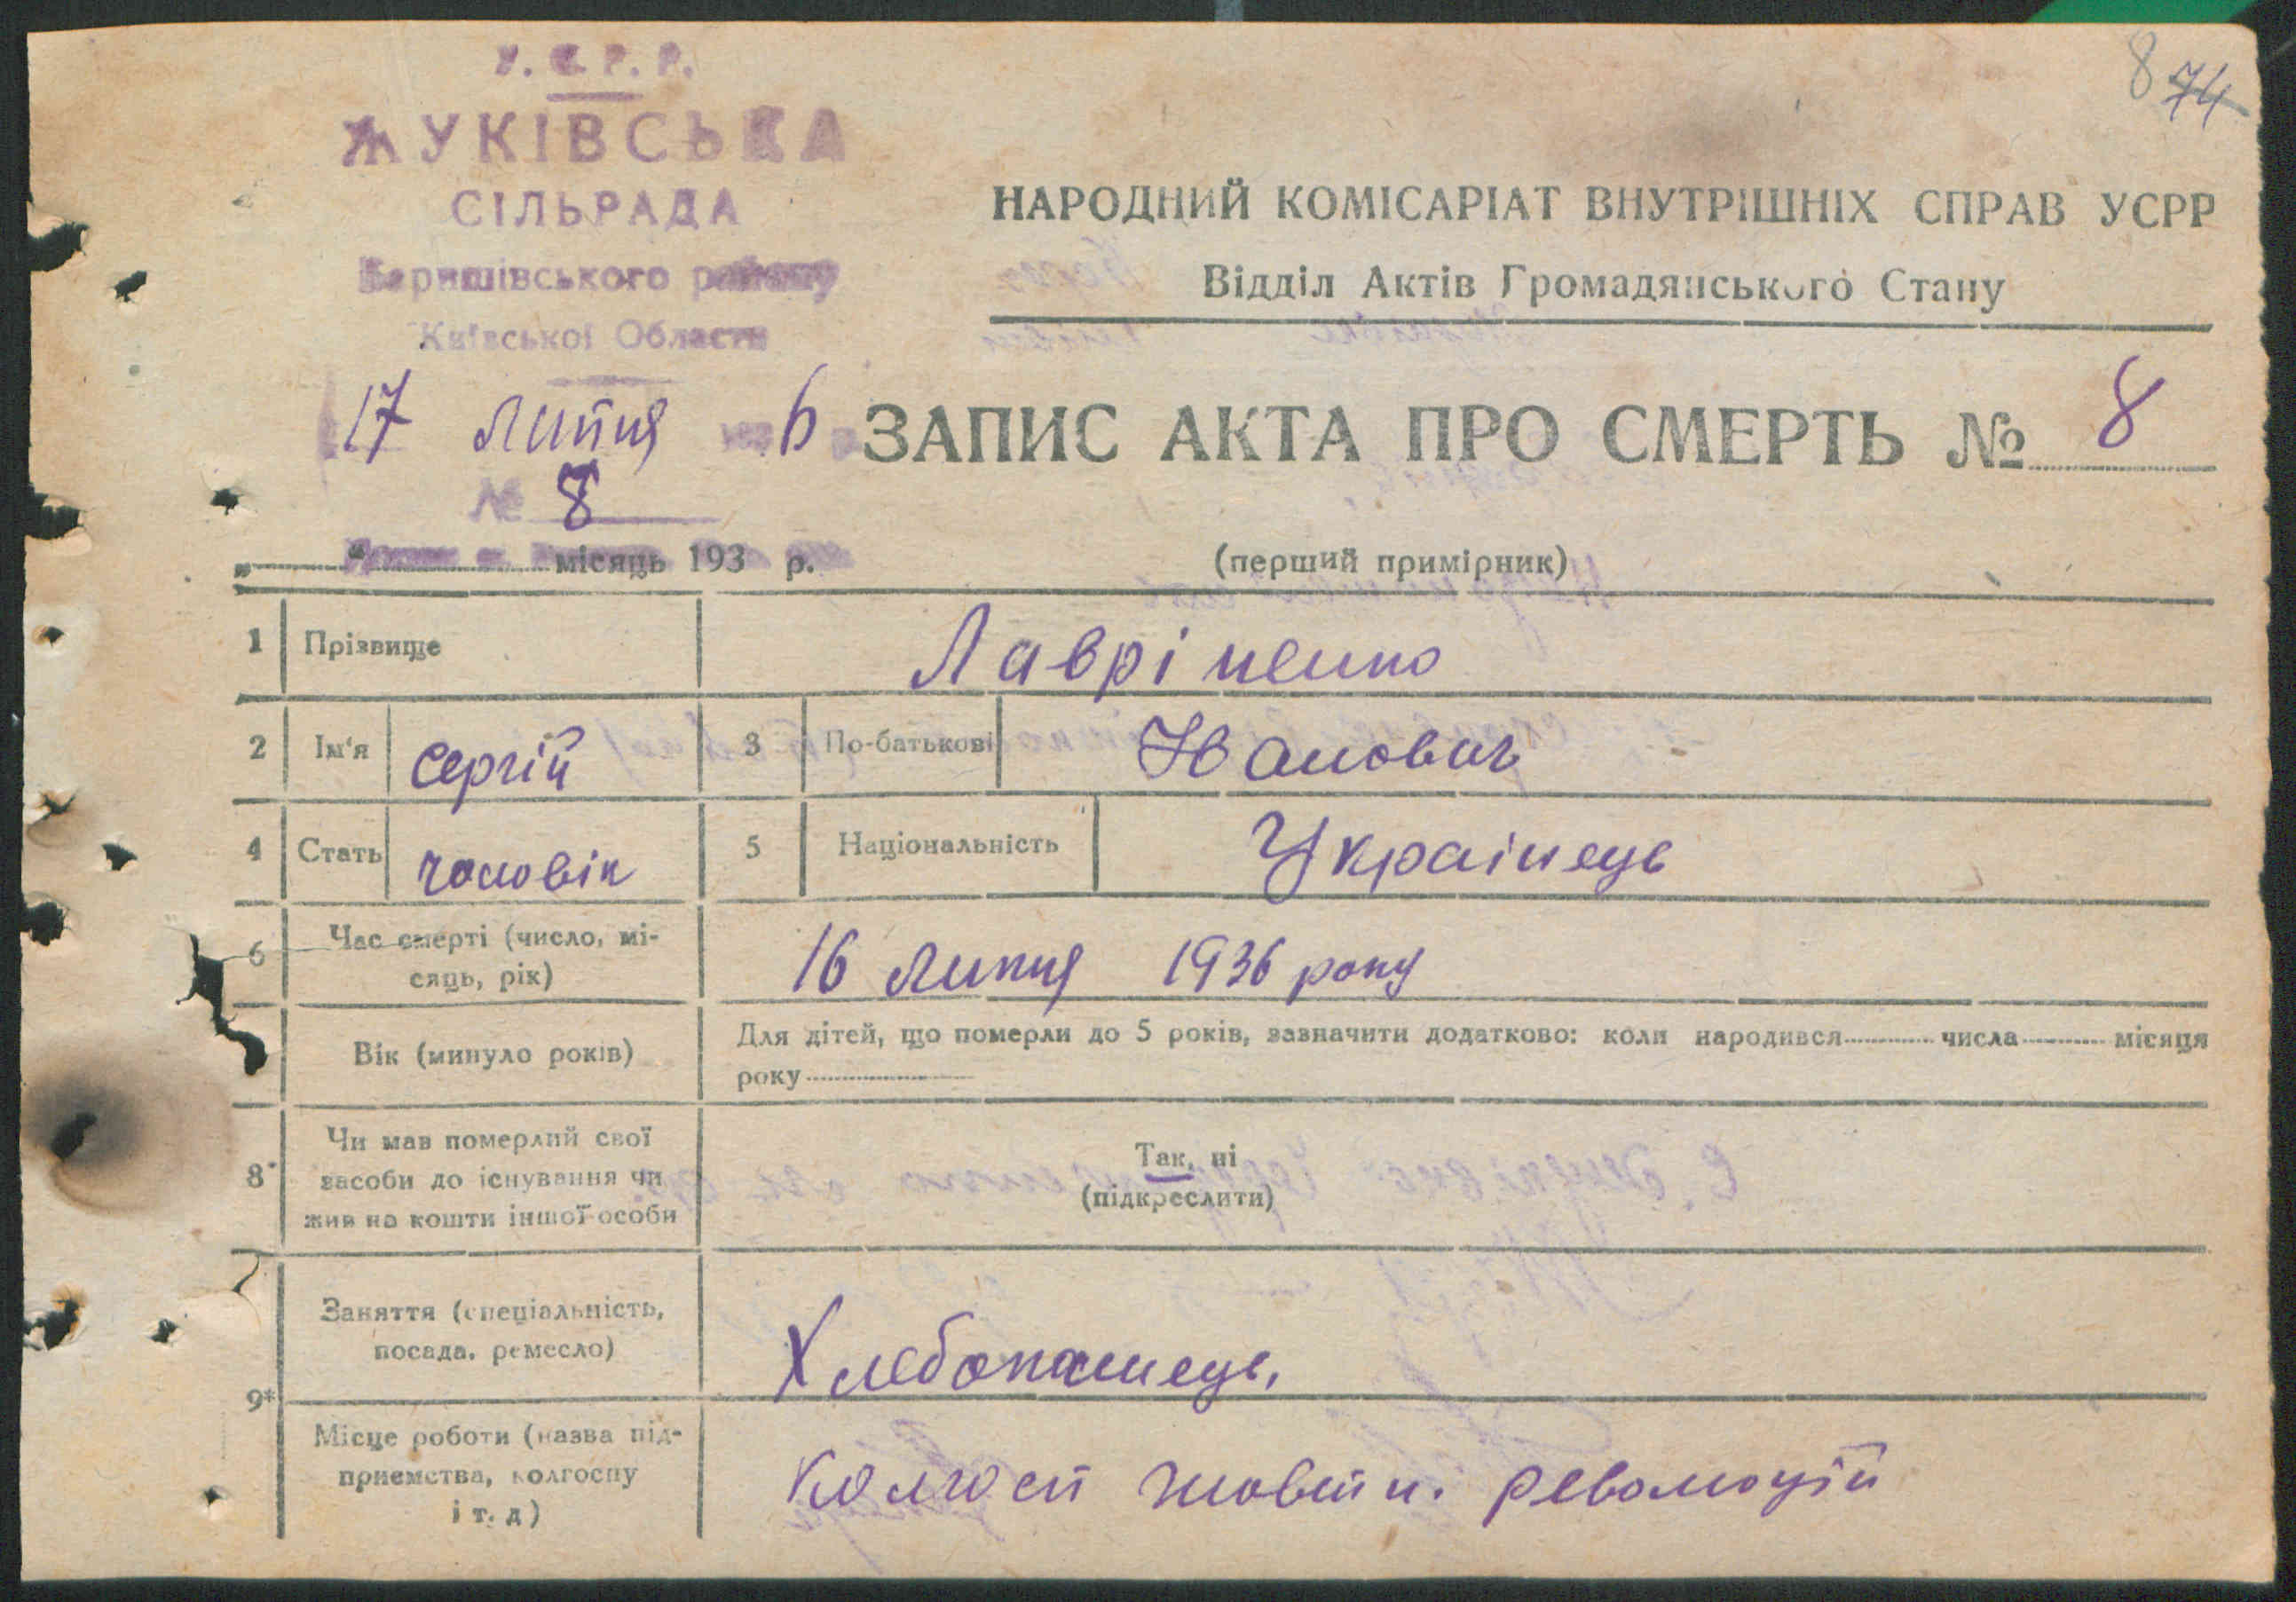 8 74
У. С. Р. Р.
ЖУКІВСЬКА
СІЛЬРАДА
Баришівського району
Київської Области
НАРОДНИЙ КОМІСАРІАТ ВНУТРІШНІХ СПРАВ УСРР
Відділ Актів Громадянського Стану
17 липня 6
№ 8
ЗАПИС АКТА ПРО СМЕРТЬ № 8
„ “ місяць 193 р.
(перший примірник)
1 Прізвище Лавріненко
2 Ім'я Сергій 3 По-батькові Іванович
4 Стать чоловік 5 Національність Украінець
6 Час смерті (число, мі-
сяць, рік) 16 липня 1936 року
Вік (минуло років) Для дітей, що померли до 5 років, зазначити додатково: коли народився числа місяця
року
8* Чи мав померлий свої
засоби до існування чи
жив на кошти іншої особи
Так, ні
(підкреслити)
9* Заняття (спеціальність,
посада, ремесло) Хлебопашець,
Місце роботи (назва під-
приємства, колгоспу
і т. д) Колгосп жовтн. революції